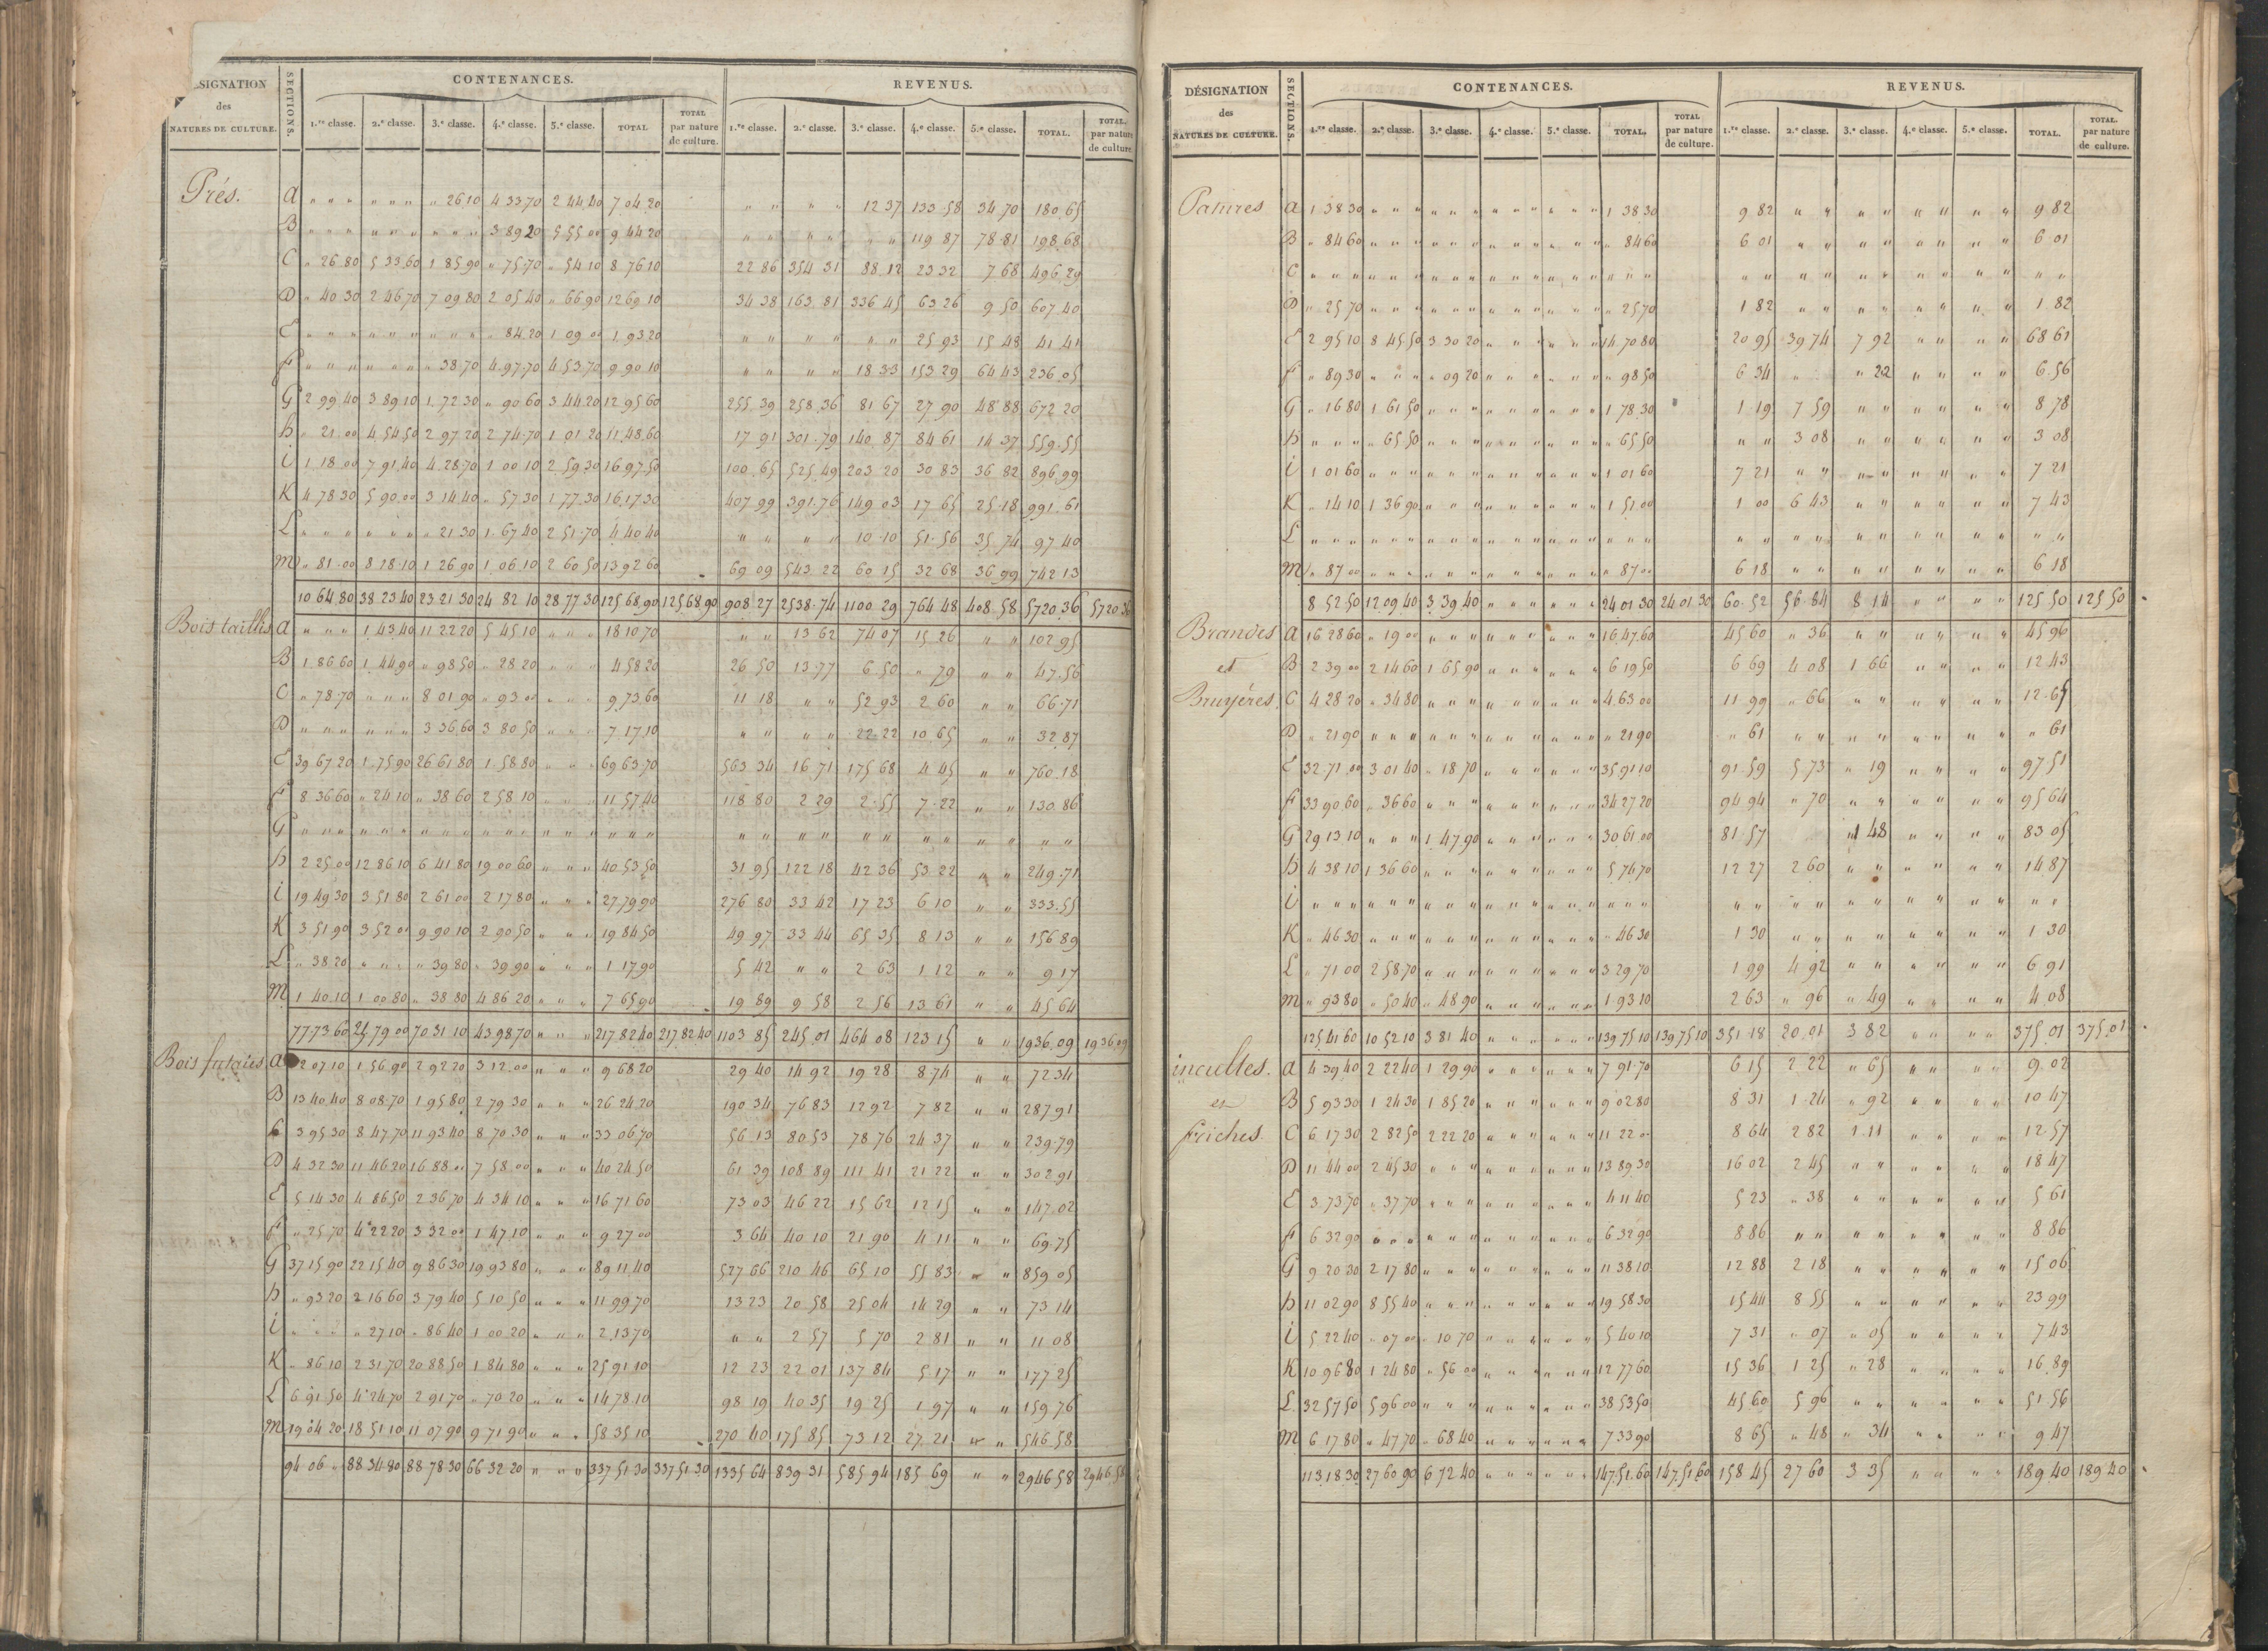 SIGNATION
des
NATURES DE CULTURE.
SECTIONS.
CONTENANCES.
REVENUS.
1.re classe. 2.e classe. 3.e classe. 4.e classe. 5.e classe. TOTAL TOTAL par nature de culture. 1.re classe. 2.e classe. 3.e classe. 4.e classe. 5.e classe. TOTAL. TOTAL. par nature de culture.
Prés. A " " " " " " " 26 10 4 33 70 2 44 40 7 04 20 " " " " 12 37 133 58 34 70 180 65
B " " " " " " " " " 3 89 20 5 55 00 9 44 20 " " " " " " 119 87 78 81 198 68
C " 26 80 5 33 60 1 85 90 " 75 70 " 54 10 8 76 10 22 86 354 31 88 12 23 32 7 68 496 29
D " 40 30 2 46 70 7 09 80 2 05 40 " 66 90 12 69 10 34 38 163 81 336 45 63 26 9 50 607 40
E " " " " " " " " " " 84 20 1 09 00 1 93 20 " " " " " " 25 93 15 48 41 41
F " " " " " " " 38 70 4 97 70 4 53 70 9 90 10 " " " " 18 33 153 29 64 43 236 05
G 2 99 40 3 89 10 1 72 30 " 90 60 3 44 20 12 95 60 255 39 258 36 81 67 27 90 48 88 672 20
H " 21 00 4 54 50 2 97 20 2 74 70 1 01 20 11 48 60 17 91 301 79 140 87 84 61 14 37 559 55
I 1 18 00 7 91 40 4 28 70 1 00 10 2 59 30 16 97 50 100 65 525 49 203 20 30 83 36 82 896 99
K 4 78 30 5 90 00 3 14 40 " 57 30 1 77 30 16 17 30 407 99 391 76 149 03 17 65 25 18 991 61
L " " " " " " " 21 30 1 67 40 2 51 70 4 40 40 " " " " 10 10 51 56 35 74 97 40
M " 81 00 8 18 10 1 26 90 1 06 10 2 60 50 13 92 60 69 09 543 22 60 15 32 68 36 99 742 13
10 64 80 38 23 40 23 21 30 24 82 10 28 77 30 125 68 90 125 68 90 908 27 2538 74 1100 29 764 48 408 58 5720 36 5720 36
Bois taillis A " " " 1 43 40 11 22 20 5 45 10 " " " 18 10 70 " " 13 62 74 07 15 26 " " 102 95
B 1 86 60 1 44 90 " 98 50 " 28 20 " " " 4 58 20 26 50 13 77 6 50 " 79 " " 47 56
C " 78 70 " " " 8 01 90 " 93 00 " " " 9 73 60 11 18 " " 52 93 2 60 " " 66 71
D " " " " " " 3 36 60 3 80 50 " " " 7 17 10 " " " " 22 22 10 65 " " 32 87
E 39 67 20 1 75 90 26 61 80 1 58 80 " " " 69 63 70 563 34 16 71 175 68 4 45 " " 760 18
F 8 36 60 " 24 10 " 38 60 2 58 10 " " " 11 57 40 118 80 2 29 2 55 7 22 " " 130 86
G " " " " " " " " " " " " " " " " " " " " " " " " " " " " " "
H 2 25 00 12 86 10 6 41 80 19 00 60 " " " 40 53 50 31 95 122 18 42 36 53 22 " " 249 71
I 19 49 30 3 51 80 2 61 00 2 17 80 " " " 27 79 90 276 80 33 42 17 23 6 10 " " 333 55
K 3 51 90 3 52 00 9 90 10 2 90 50 " " " 19 84 50 49 97 33 44 65 35 8 13 " " 156 89
L " 38 20 " " " " 39 80 " 39 90 " " " 1 17 90 5 42 " " 2 63 1 12 " " 9 17
M 1 40 10 1 00 80 " 38 80 4 86 20 " " " 7 65 90 19 89 9 58 2 56 13 61 " " 45 64
77 73 60 25 79 00 70 31 10 43 98 70 " " " 217 82 40 217 82 40 1103 85 245 01 464 08 123 15 " " 1936 09 1936 09
Bois futaies A 2 07 10 1 56 90 2 92 20 3 12 00 " " " 9 68 20 29 40 14 92 19 28 8 74 " " 72 34
B 13 40 40 8 08 70 1 95 80 2 79 30 " " " 26 24 20 190 34 76 83 12 92 7 82 " " 287 91
C 3 95 30 8 47 70 11 93 40 8 70 30 " " " 33 06 70 56 13 80 53 78 76 24 37 " " 239 79
D 4 32 30 11 46 20 16 88 00 7 58 00 " " " 40 24 50 61 39 108 89 111 41 21 22 " " 302 91
E 5 14 30 4 86 50 2 36 70 4 34 10 " " " 16 71 60 73 03 46 22 15 62 12 15 " " 147 02
F " 25 70 4 22 20 3 32 00 1 47 10 " " " 9 27 00 3 64 40 10 21 90 4 11 " " 69 75
G 37 15 90 22 15 40 9 86 30 19 93 80 " " " 89 11 40 527 66 210 46 65 10 55 83 " " 859 05
H " 93 20 2 16 60 3 79 40 5 10 50 " " " 11 99 70 13 23 20 58 25 04 14 29 " " 73 14
I " " " " 27 10 " 86 40 1 00 20 " " " 2 13 70 " " 2 57 5 70 2 81 " " 11 08
K " 86 10 2 31 70 20 88 50 1 84 80 " " " 25 91 10 12 23 22 01 137 84 5 17 " " 177 25
L 6 91 50 4 24 70 2 91 70 " 70 20 " " " 14 78 10 98 19 40 35 19 25 1 97 " " 159 76
M 19 04 20 18 51 10 11 07 90 9 71 90 " " " 58 35 10 270 40 175 85 73 12 27 21 " " 546 58
94 06 " 88 34 80 88 78 30 66 32 20 " " " 337 51 30 337 51 30 1335 64 839 31 585 94 185 69 " " 2946 58 2946 58
DÉSIGNATION
des
NATURES DE CULTURE.
SECTIONS.
CONTENANCES.
REVENUS.
1.re classe. 2.e classe. 3.e classe. 4.e classe. 5.e classe. TOTAL. TOTAL par nature de culture. 1.re classe. 2.e classe. 3.e classe. 4.e classe. 5.e classe. TOTAL. TOTAL. par nature de culture.
Patures A 1 38 30 " " " " " " " " " " " " 1 38 30 9 82 " " " " " " " " 9 82
B " 84 60 " " " " " " " " " " " " " 84 60 6 01 " " " " " " " " 6 01
C " " " " " " " " " " " " " " " " " " " " " " " " " " " " " "
D " 25 70 " " " " " " " " " " " " " 25 70 1 82 " " " " " " " " 1 82
E 2 95 10 8 45 50 3 30 20 " " " " " " 14 70 80 20 95 39 74 7 92 " " " " 68 61
F " 89 30 " " " " 09 20 " " " " " " " 98 50 6 34 " " 22 " " " " 6 56
G " 16 80 1 61 50 " " " " " " " " " 1 78 30 1 19 7 59 " " " " " " 8 78
H " " " " 65 50 " " " " " " " " " " 65 50 " " 3 08 " " " " " " 3 08
I 1 01 60 " " " " " " " " " " " " 1 01 60 7 21 " " " " " " " " 7 21
K " 14 10 1 36 90 " " " " " " " " " 1 51 00 1 00 6 43 " " " " " " 7 43
L " " " " " " " " " " " " " " " " " " " " " " " " " " " " " "
M " 87 00 " " " " " " " " " " " " " 87 00 6 18 " " " " " " " " 6 18
8 52 50 12 09 40 3 39 40 " " " " " " 24 01 30 24 01 30 60 52 56 84 8 14 " " " " 125 50 125 50
Brandes A 16 28 60 " 19 00 " " " " " " " " " 16 47 60 45 60 " 36 " " " " " " 45 96
et B 2 39 00 2 14 60 1 65 90 " " " " " " 6 19 50 6 69 4 08 1 66 " " " " 12 43
Bruyéres. C 4 28 20 " 34 80 " " " " " " " " " 4 63 00 11 99 " 66 " " " " " " 12 65
D " 21 90 " " " " " " " " " " " " " 21 90 " 61 " " " " " " " " " 61
E 32 71 00 3 01 40 " 18 70 " " " " " " 35 91 10 91 59 5 73 " 19 " " " " 97 51
F 33 90 60 " 36 60 " " " " " " " " " 34 27 20 94 94 " 70 " " " " " " 95 64
G 29 13 10 " " " 1 47 90 " " " " " " 30 61 00 81 57 1 48 " " " " 83 05
H 4 38 10 1 36 60 " " " " " " " " " 5 74 70 12 27 2 60 " " " " " " 14 87
I " " " " " " " " " " " " " " " " " " " " " " " " " " " " " "
K " 46 30 " " " " " " " " " " " " " 46 30 1 30 " " " " " " " " 1 30
L " 71 00 2 58 70 " " " " " " " " " 3 29 70 1 99 4 92 " " " " " " 6 91
M " 93 80 " 50 40 " 48 90 " " " " " " 1 93 10 2 63 " 96 " 49 " " " " 4 08
125 41 60 10 52 10 3 81 40 " " " " " " 139 75 10 139 75 10 351 18 20 01 3 82 " " " " 375 01 375 01
incultes. A 4 39 40 2 22 40 1 29 90 " " " " " " 7 91 70 6 15 2 22 " 65 " " " " 9 02
et B 5 93 30 1 24 30 1 85 20 " " " " " " 9 02 80 8 31 1 24 " 92 " " " " 10 47
friches. C 6 17 30 2 82 50 2 22 20 " " " " " " 11 22 " 8 64 2 82 1 11 " " " " 12 57
D 11 44 00 2 45 30 " " " " " " " " " 13 89 30 16 02 2 45 " " " " " " 18 47
E 3 73 70 " 37 70 " " " " " " " " " 4 11 40 5 23 " 38 " " " " " " 5 61
F 6 32 90 " " " " " " " " " " " " 6 32 90 8 86 " " " " " " " " 8 86
G 9 20 30 2 17 80 " " " " " " " " " 11 38 10 12 88 2 18 " " " " " " 15 06
H 11 02 90 8 55 40 " " " " " " " " " 19 58 30 15 44 8 55 " " " " " " 23 99
I 5 22 40 " 07 00 " 10 70 " " " " " " 5 40 10 7 31 " 07 " 05 " " " " 7 43
K 10 96 80 1 24 80 " 56 00 " " " " " " 12 77 60 15 36 1 25 " 28 " " " " 16 89
L 32 57 50 5 96 00 " " " " " " " " " 38 53 50 45 60 5 96 " " " " " " 51 56
M 6 17 80 " 47 70 " 68 40 " " " " " " 7 33 90 8 65 " 48 " 34 " " " " 9 47
113 18 30 27 60 90 6 72 40 " " " " " " 147 51 60 147 51 60 158 45 27 60 3 35 " " " " 189 40 189 40